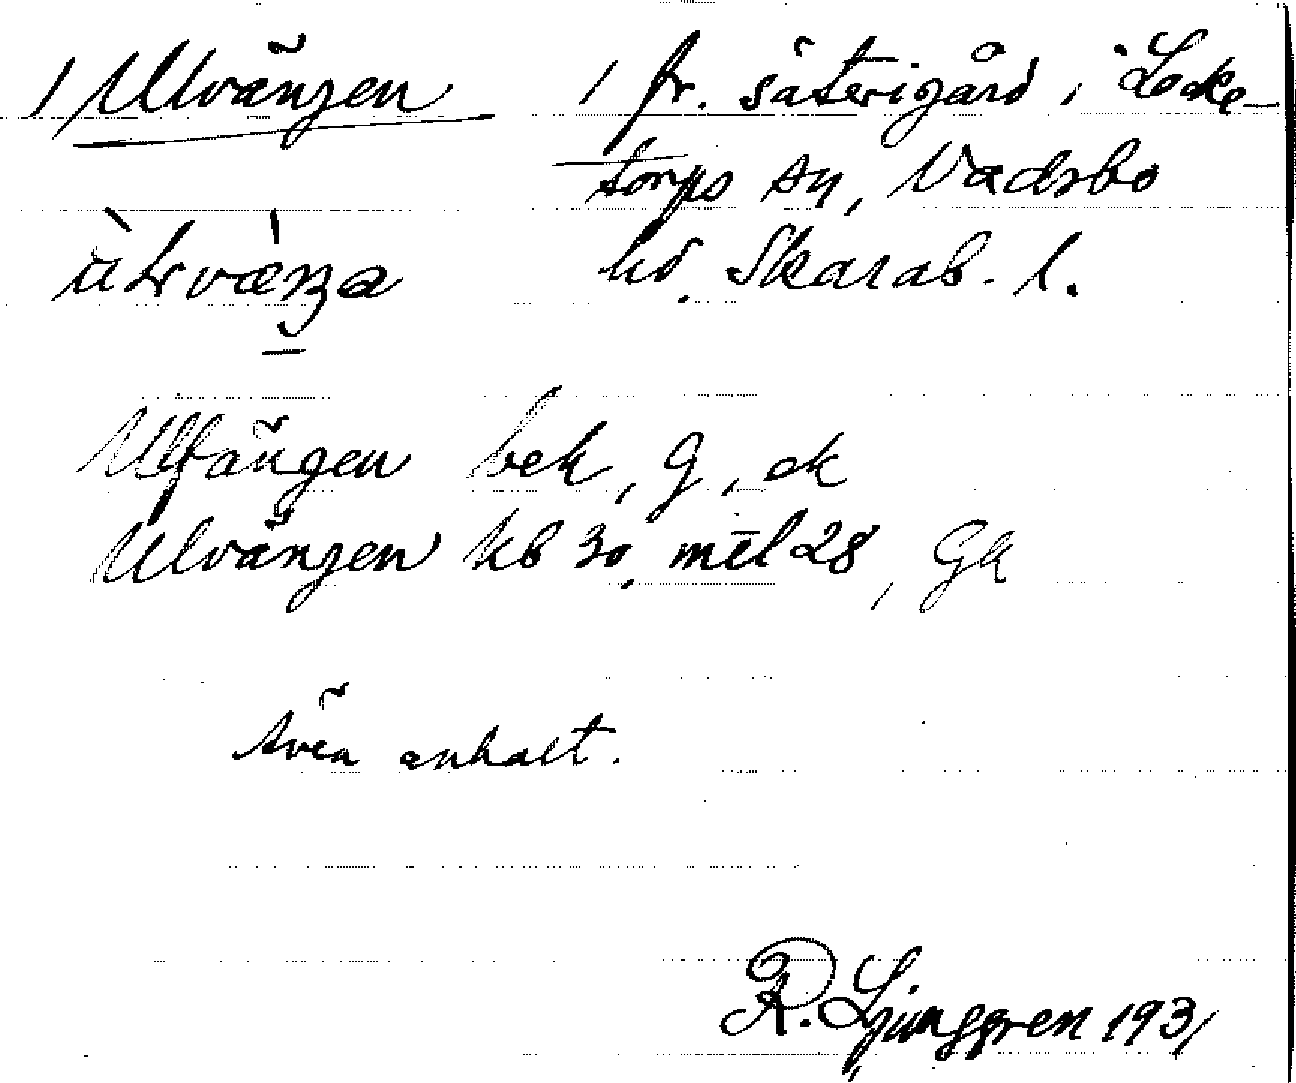 1 Ulvängen 1 fr. säterigård i Locke-
torps sn, Vadsbo
hd. Skarab. l.
Ulfängen bek, G, ek
Ulvängen kb 30, mtl 28, Gk
Även anhalt.
R. Ljunggren 1931